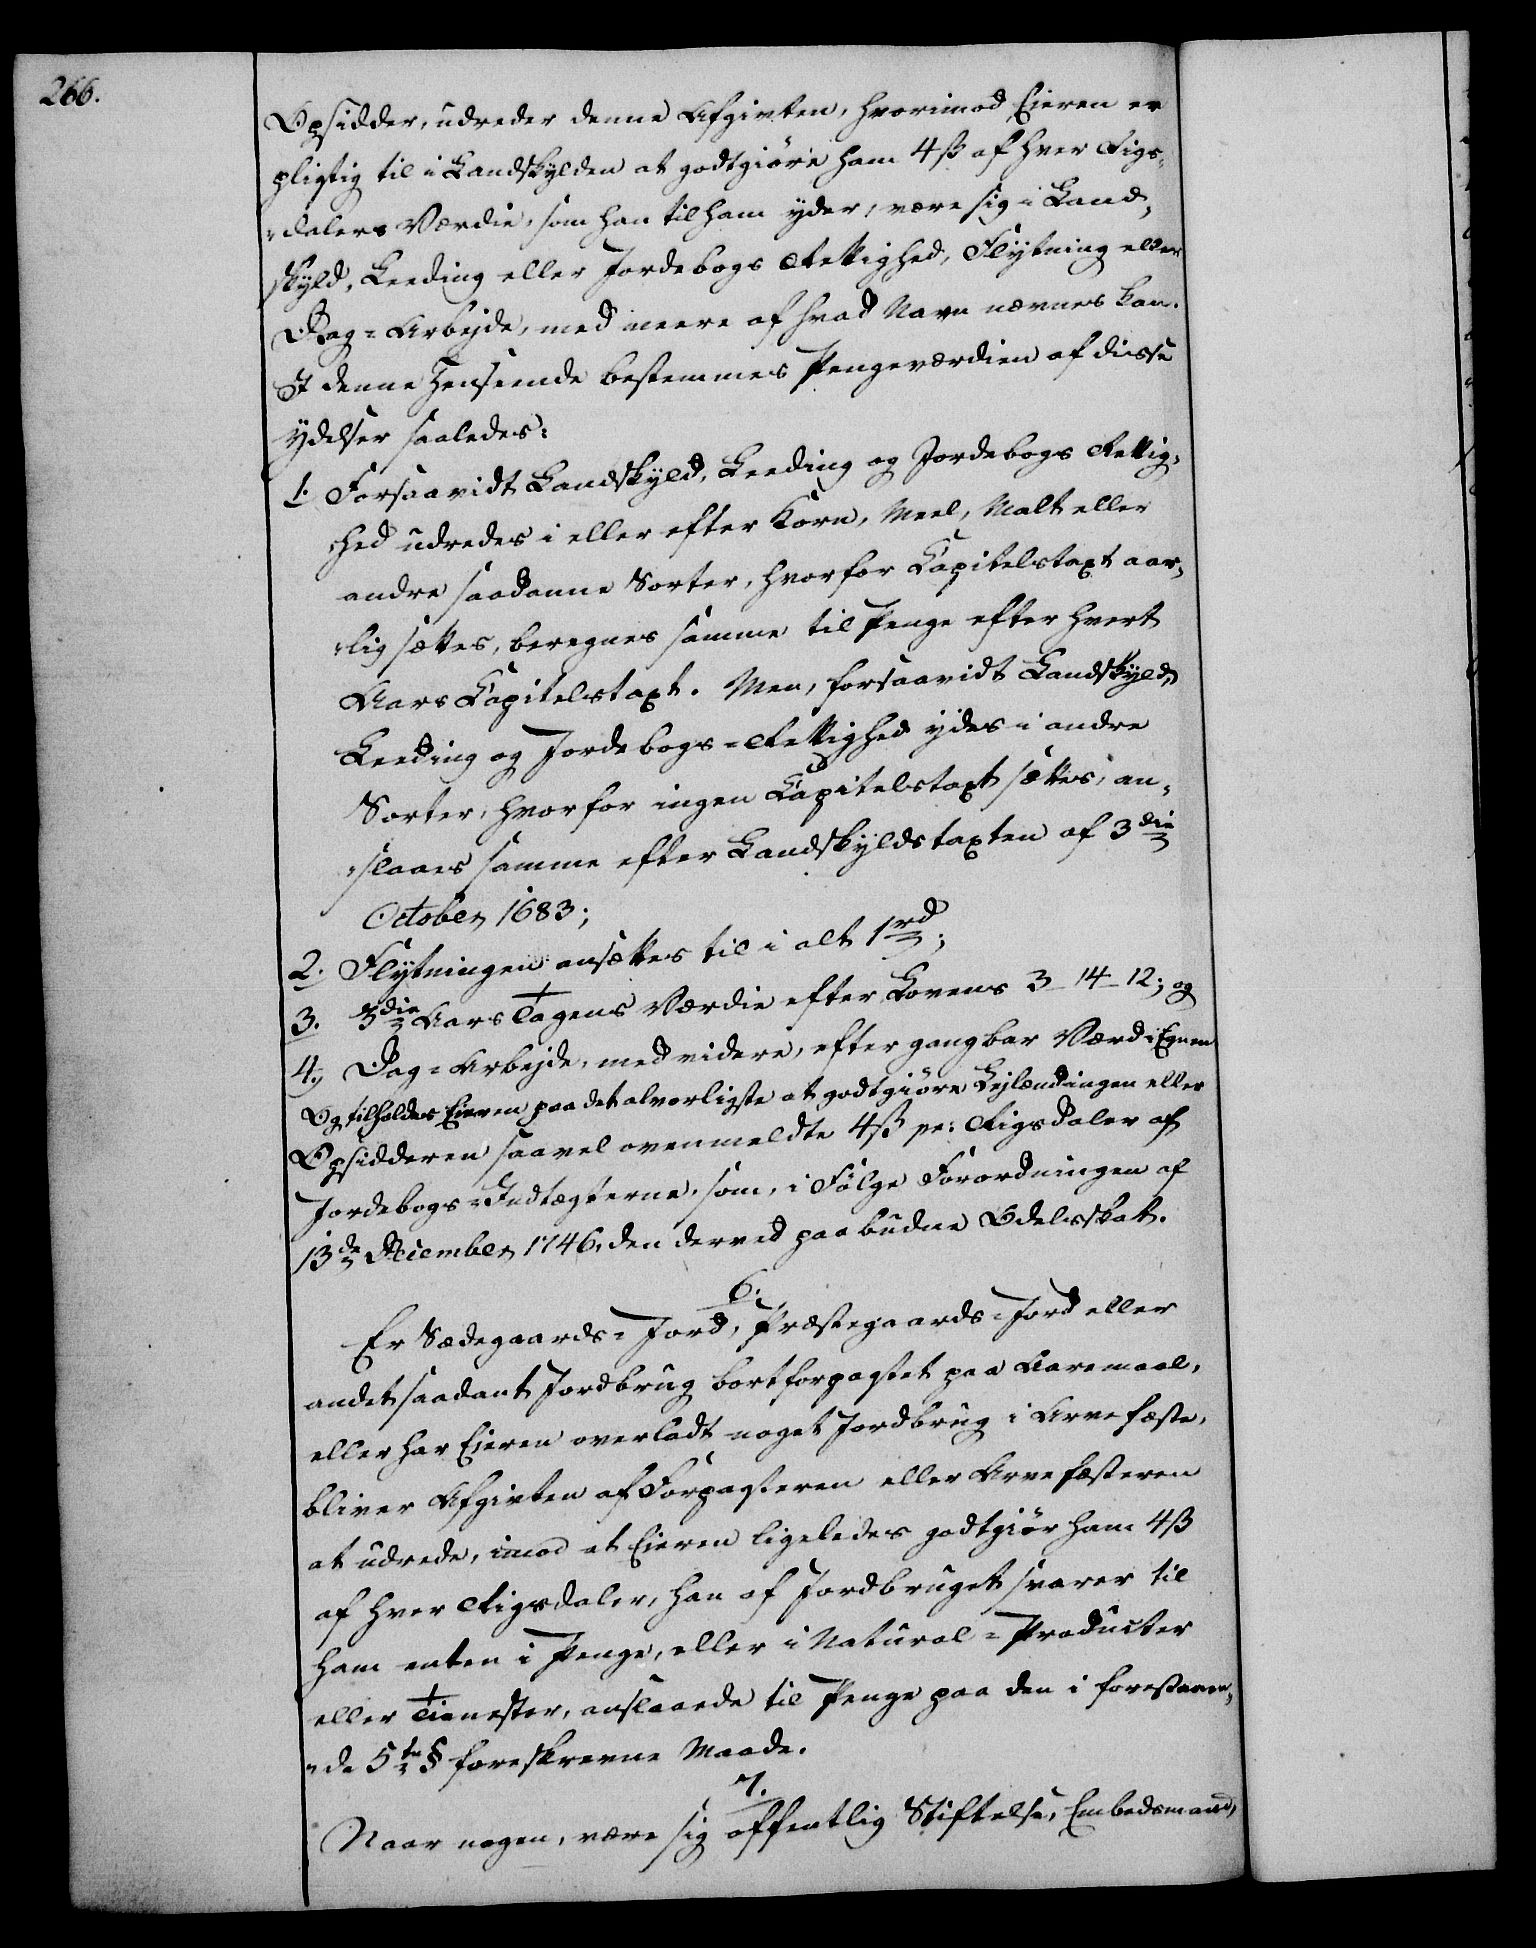 266.
Opsidder, udreder denne Afgivten, hvorimod Eieren er
pligtig til i Landskylden at godtgiöre ham 4 ß af hver Rigs-
-dalers Værdie, som han til ham yder, være sig i Land-
skyld, Leeding eller Jordebogs Rettighed, Flytning eller
Dag=Arbejde, med meere af hvad Navn nævnes kan.
I denne Henseende bestemmes Pengeværdien af disse
ydelser saaledes:
1. Forsaavidt Landskyld, Leeding og Jordebogs Rettig-
-hed udredes i eller efter Korn, Meel, Malt eller
andre saadanne Sorter, hvorfor Kapitelstaxt aar-
-lig sættes, beregnes samme til Penge efter hvert
Aars Kapitelstaxt. Men, forsaavidt Landskyld,
Leeding og Jordebogs=Rettighed ydes i andre
Sorter, hvorfor ingen Kapitelstaxt sættes, an-
-slaaes samme efter Landskyldstaxten af 3die
October 1683;
2. Flytningen ansættes til i alt 1 rd;
3. 3die Aars Tagens Værdie efter Lovens 3-14-12; og
4, Dag=Arbejde, med videre, efter gangbar Værd i Egnen
Og tilholdes Eieren paa det alvorligste at godtgiöre Lejlændingen eller
Opsidderen saavel ovenmeldte 4 ß pr: Rigsdaler af
Jordebogs=Indtægterne, som, i Fölge Forordningen af
13de December 1746, den derved paabudne Odelsskat.
6.
Er Sædegaards=Jord, Præstegaards=Jord eller
andet saadant Jordbrug bortforpagtet paa Aaremaal,
eller har Eieren overladt noget Jordbrug i Arvefæste,
bliver Afgivten af Forpagteren eller Arvefæsteren
at udrede, imod at Eieren ligeledes godtgiör ham 4 ß
af hver Rigsdaler, han af Jordbruget svarer til
ham enten i Penge, eller i Natural=Producter
eller Tienester, anslaaede til Penge paa den i forestaaen-
-de 5te § foreskrevne Maade.
7.
Naar nogen, være sig offentlig Stiftelse, Embedsmand,